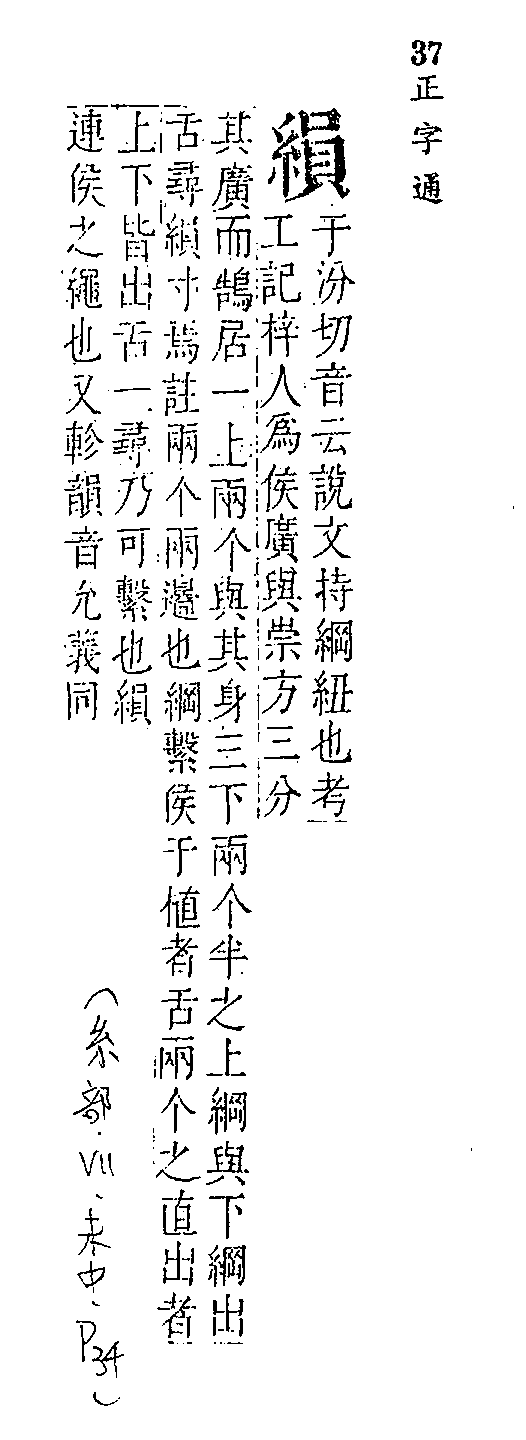 37正字通
縜
于汾切音云說文持綱紐也考
工記梓人爲侯廣與崇方三分
其廣而鵠居一上兩个與其身三下兩个半之上綱與下綱出
舌尋縜寸焉註兩个兩邊也綱繫侯于植者舌兩个之直出者
上下皆出舌一尋乃可繫也縜
連侯之繩也又軫韻音允義同
(糸部、VII、未中、P34)